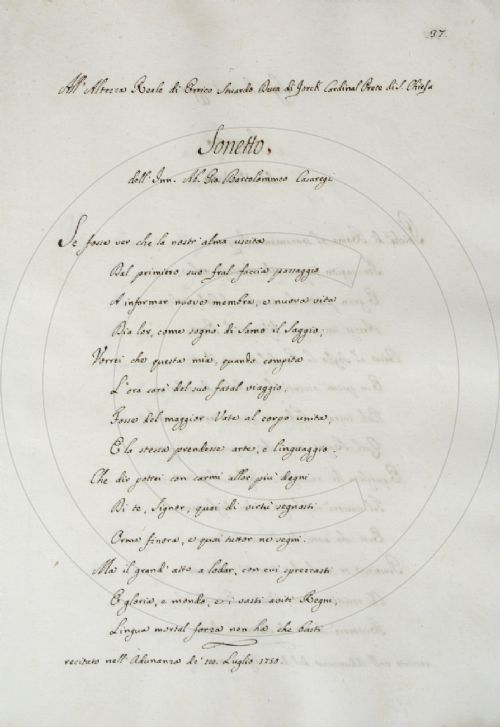 37.
All' Altezza Reale di Errico Stuardo Duca di Jorck Cardinal Prete di S. Chiesa
Sonetto,
dell' Inn. Ab. Gio. Bartolommeo Casaregi
Se fosse ver che la nostr' alma uscita
Dal primiero suo fral faccia passaggio
A informar nuove membra, e nuova vita
Dia lor, come sognò di Samo il Saggio;
Vorrei che questa mia, quando compita
L' ora sarà del suo fatal viaggio,
Fosse del maggior Vate al corpo unita,
E la stessa prendesse arte, e linguaggio.
Che dir potrei con carmi allor più degni
Di te, Signor, quai di virtù segnasti
Orme finora, e quai tuttor ne segni.
Ma il grand' atto a lodar, con cui sprezzasti
E gloria, e mondo, e i vasti aviti Regni,
Lingua mortal forza non ha che basti
recitato nell' Adunanza de' Luglio